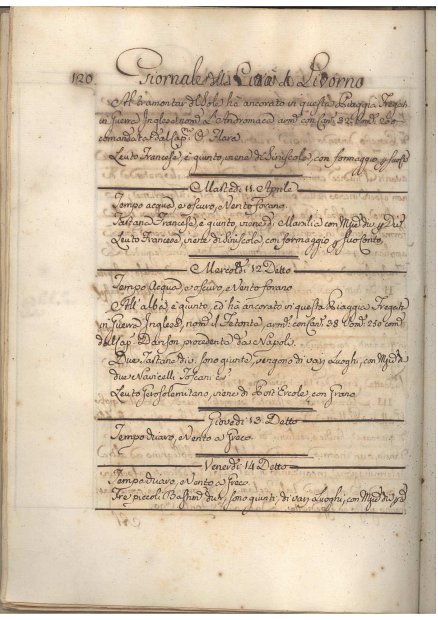 120 Giornale della Città di Livorno
Al tramontar del Sole hà ancorato in questa Piaggia Fregata
in Guerra Inglese nom.ª L'Andromaca arm.ª con Can: 32: Uom:
comandata dal Cap:
Leuto Francese, è giunto, viene di Siniscola, con formaggio p
Martedì 11 Aprile
Tempo acqua, e oscuro, e Vento forano
Tartana Francese, è giunto, viene di Marsilia con
Leuto Francese, viene di Siniscola, con formaggio p suo Conto
Mercoldì 12 Detto
Tempo Acqua, e oscuro, e Vento forano
All'alba è giunto, ed hà ancorato in questa Piaggia Fregata
in Guerra Inglese, nom.ª arm.ª con Can: 38 Uom: 250 com.ª
dal Cap: proveniente da Napoli
Due Tartane div: sono giunte, vengono di varj Luoghi, con
due Navicelli Toscani
Leuto Gerosolemitano, viene di Port'Ercole, con Grano
Giovedì 13 Detto
Tempo chiaro, e Vento a Greco
Venerdì 14 Detto
Tempo chiaro, e Vento a Greco
Tre piccoli Bastim: div: sono giunti, di varj Luoghi, con